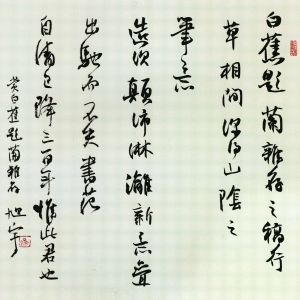 白蕉题兰杂存之稿行
草相间深得山陰之
筆意
造次顛沛淋漓新意叠
出馳而不失書范
自清已降三百年惟此君也
赏白蕉题兰雜存 旭宇